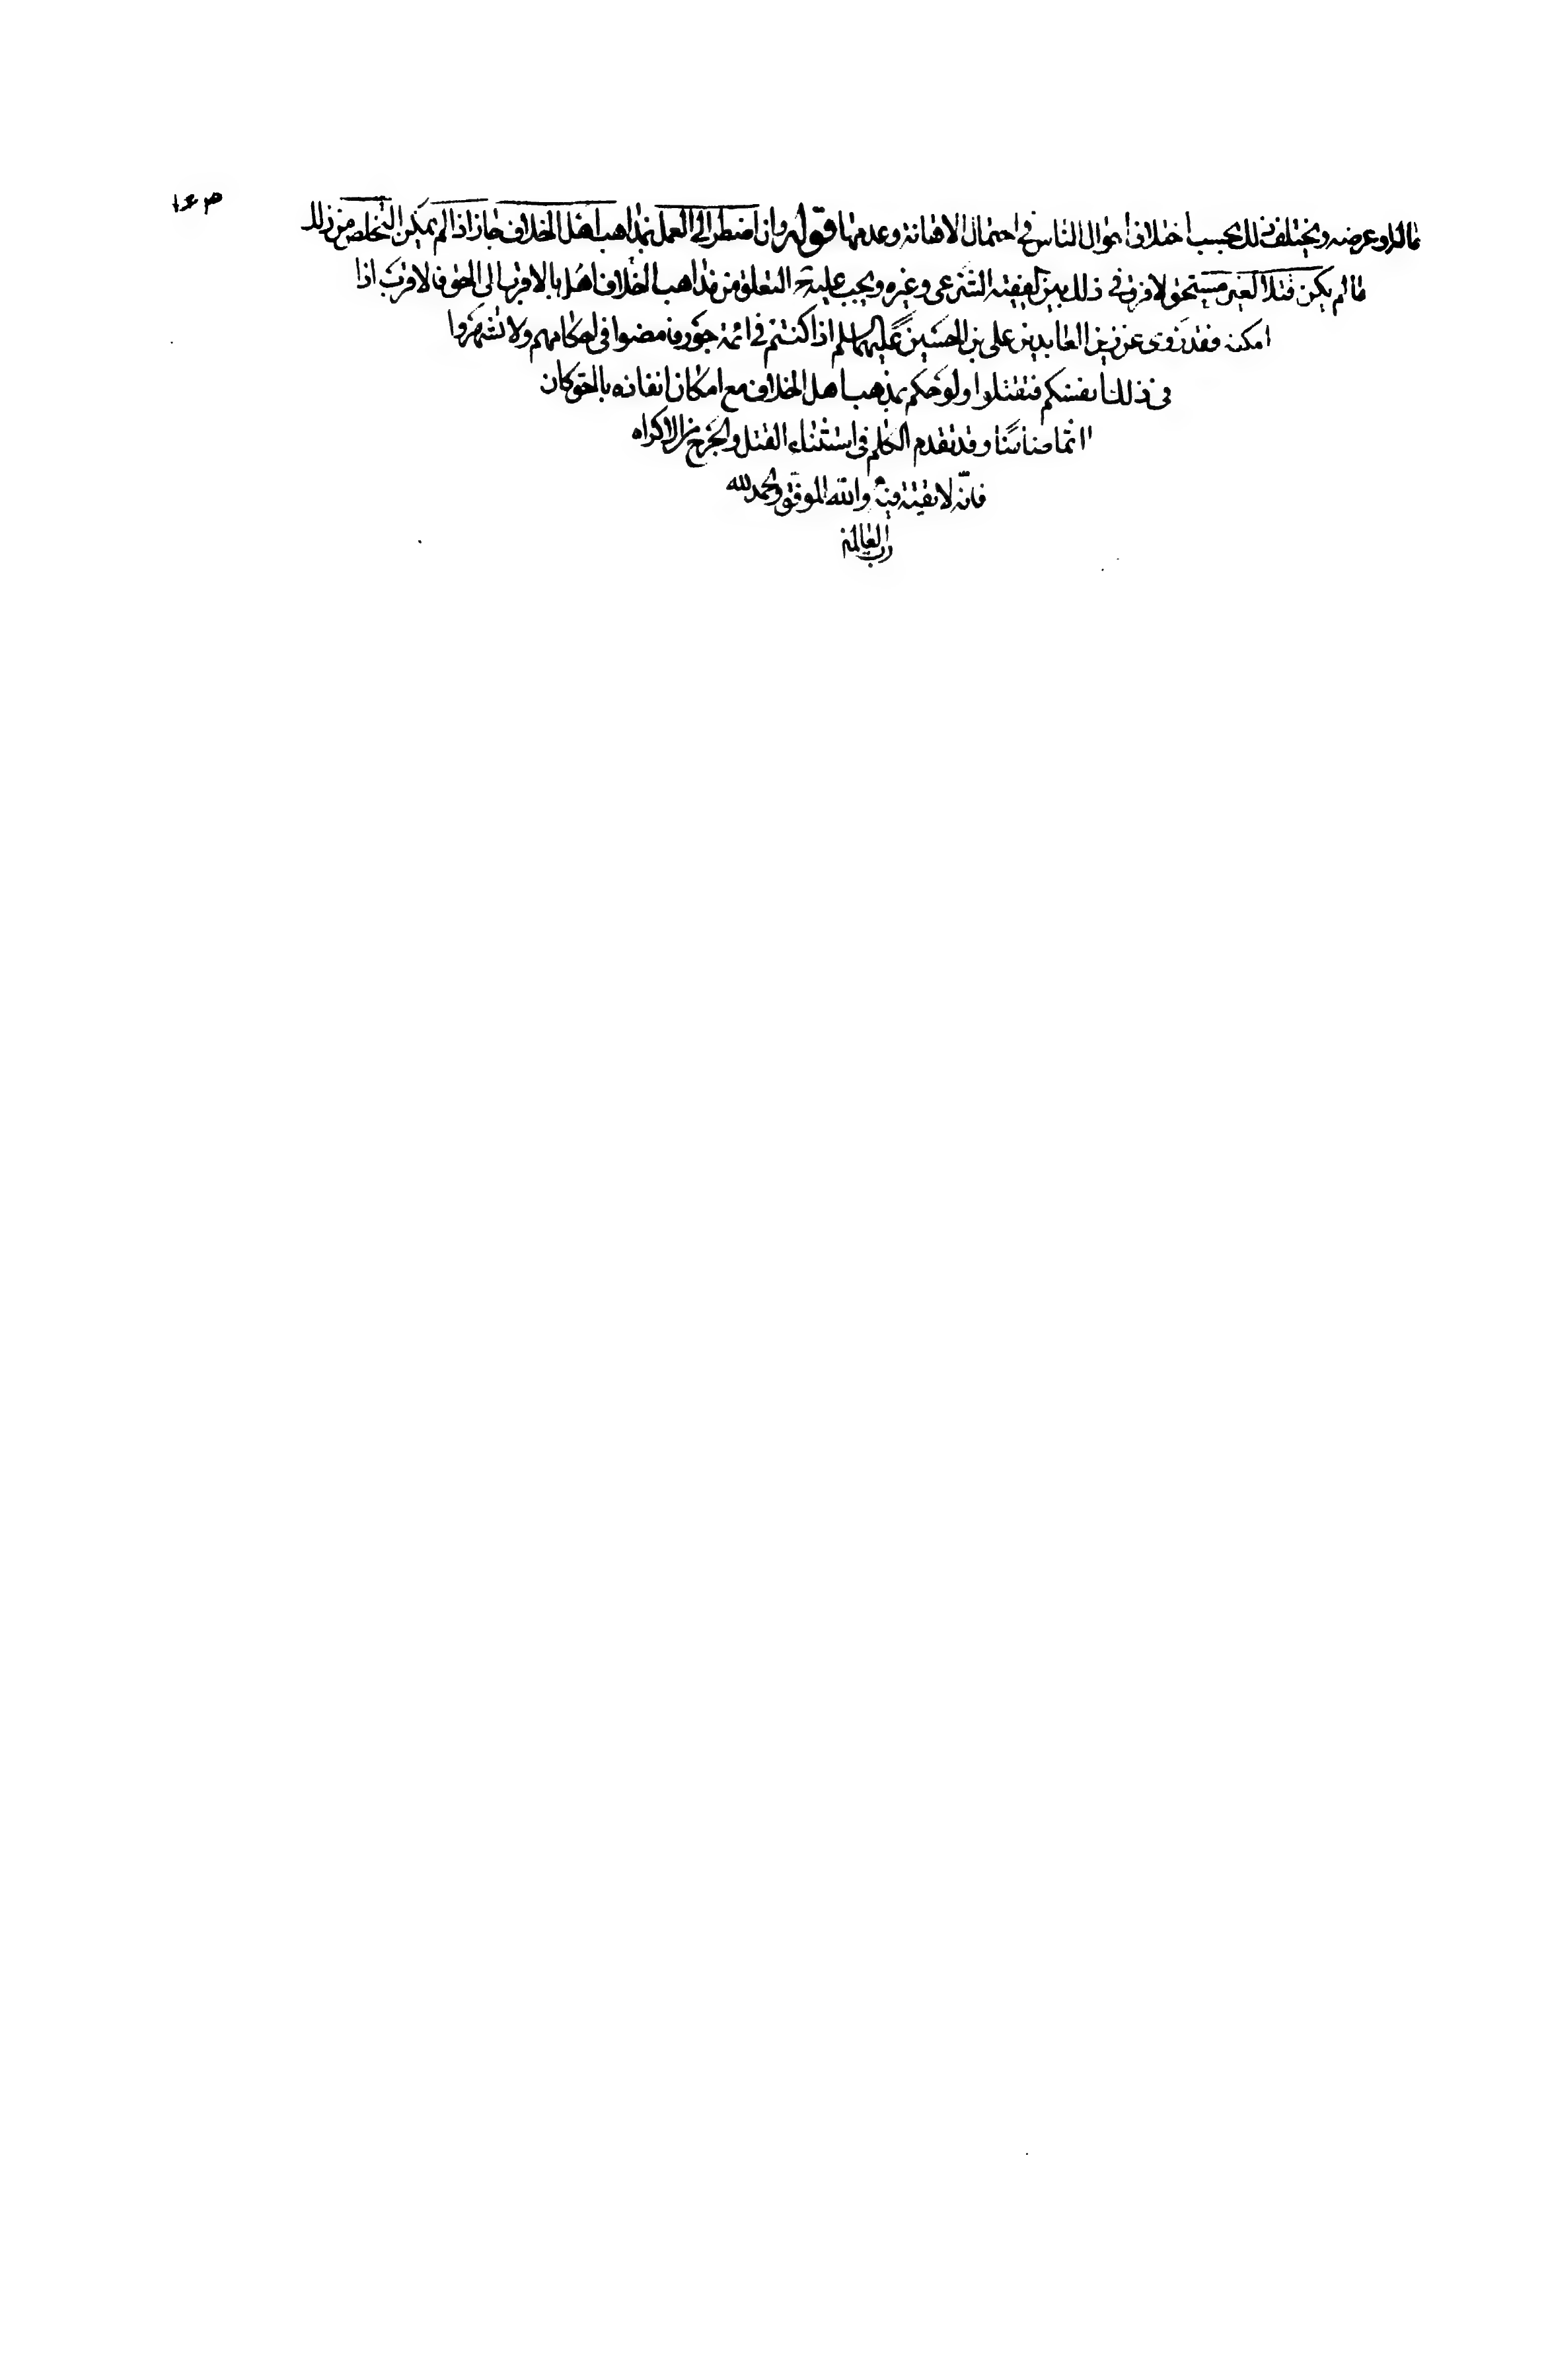 ١٤٣
ماله او عرضه ويختلف ذلك بحسب اختلاف احوال الناس في احتمال الاهانة وعدمها قوله وان اضطر الى العمل بمذاهب اهل الخلاف جاز اذا لم يمكن التخلص من ذلك
ما لم يكن قتلا لغير مستحق لا فرق في ذلك بين الفقيه الشرعي وغيره ويجب عليه ح التعلق من مذاهب الخلاف اهلها بالاقرب الى الحق فالاقرب اذا
امكنه فقد روى عن زين العابدين علي بن الحسين عليهما السلم اذا كنتم في ائمة جور فامضوا في احكامهم ولا تشهروا
في ذلك انفسكم فتقتلوا ولو حكم بمذهب اهل الخلاف مع امكان انفاذه بالحق كان
اثما ضامنا وقد تقدم الكلم في استثناء القتل والجرح من الاكراه
فانه لا تقية فيه والله الموفق والحمد لله
رب العالمين